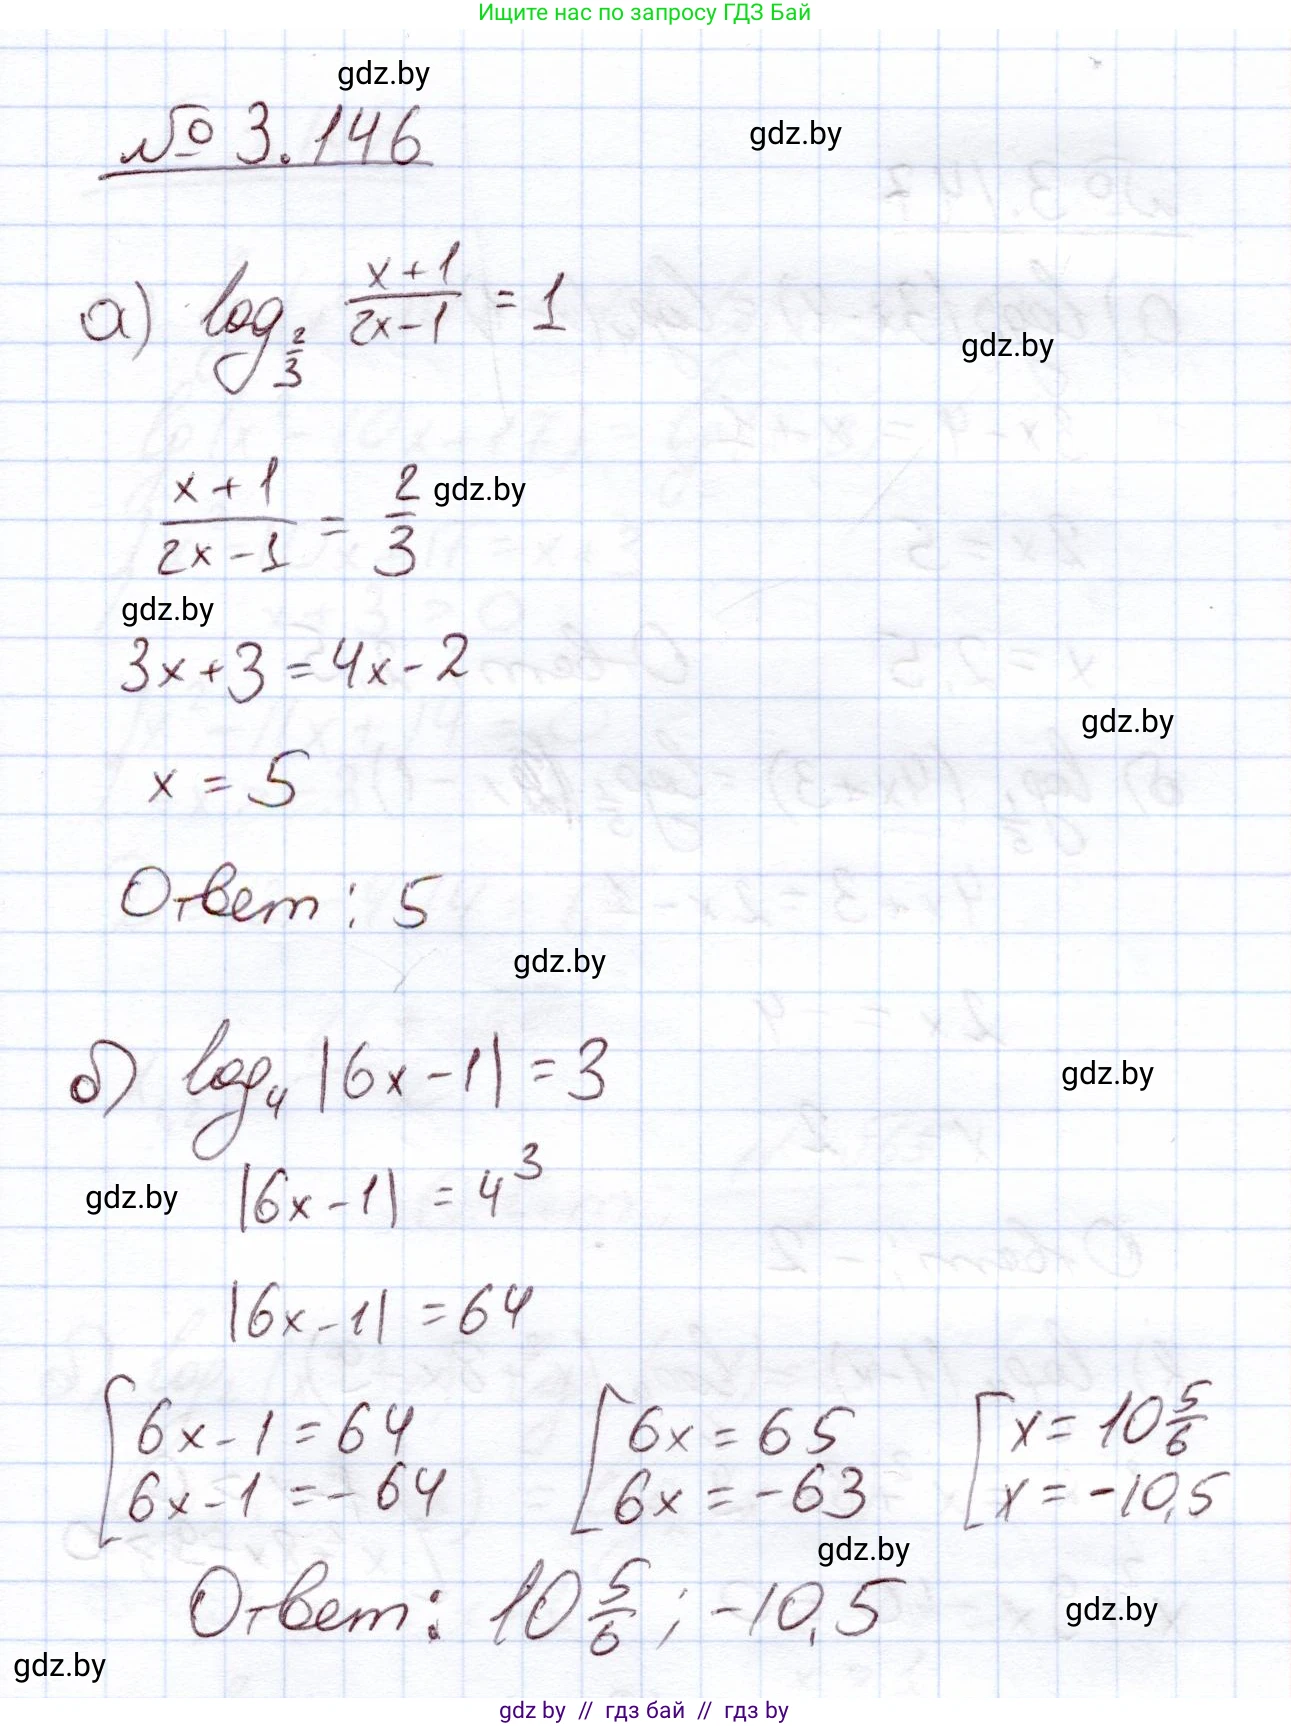 Ищите нас по запросу ГДЗ Бай
gdz.by
№ 3.146
gdz.by
а) log_{2/3} (x+1)/(2x-1) = 1
gdz.by
(x+1)/(2x-1) = 2/3
gdz.by
gdz.by
3x+3 = 4x-2
gdz.by
x = 5
Ответ: 5
gdz.by
б) log_4 |6x-1| = 3
gdz.by
|6x-1| = 4^3
gdz.by
|6x-1| = 64
[6x-1 = 64 [6x = 65 [x = 10 5/6
6x-1 = -64 6x = -63 x = -10,5
gdz.by
Ответ: 10 5/6 ; -10,5
gdz.by
gdz.by
gdz by // гдз бай // гдз by